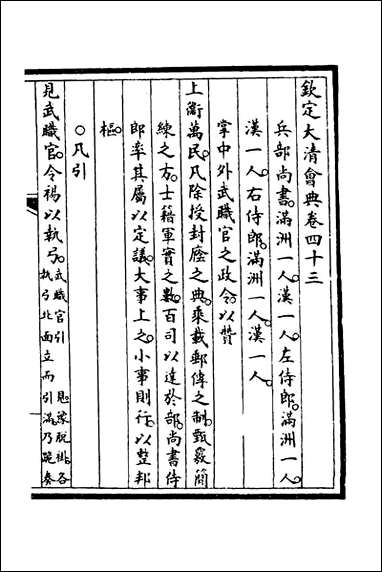 欽定大清會典卷四十三
兵部尚書。滿洲一人。漢一人。左侍郎。滿洲一人。
漢一人。右侍郎。滿洲一人。漢一人。
掌中外武職官之政令。以贊
上衞萬民。凡除授封廕之典。乘載郵傳之制。甄覈簡
練之方。士籍軍實之數。百司以達於部。尚書侍
郎率其屬以定議。大事上之。小事則行。以整邦
樞。
○凡引
見武職官。令裼以執弓。武職官引見。豫脫褂。各執弓北面立而引滿。乃跪奏